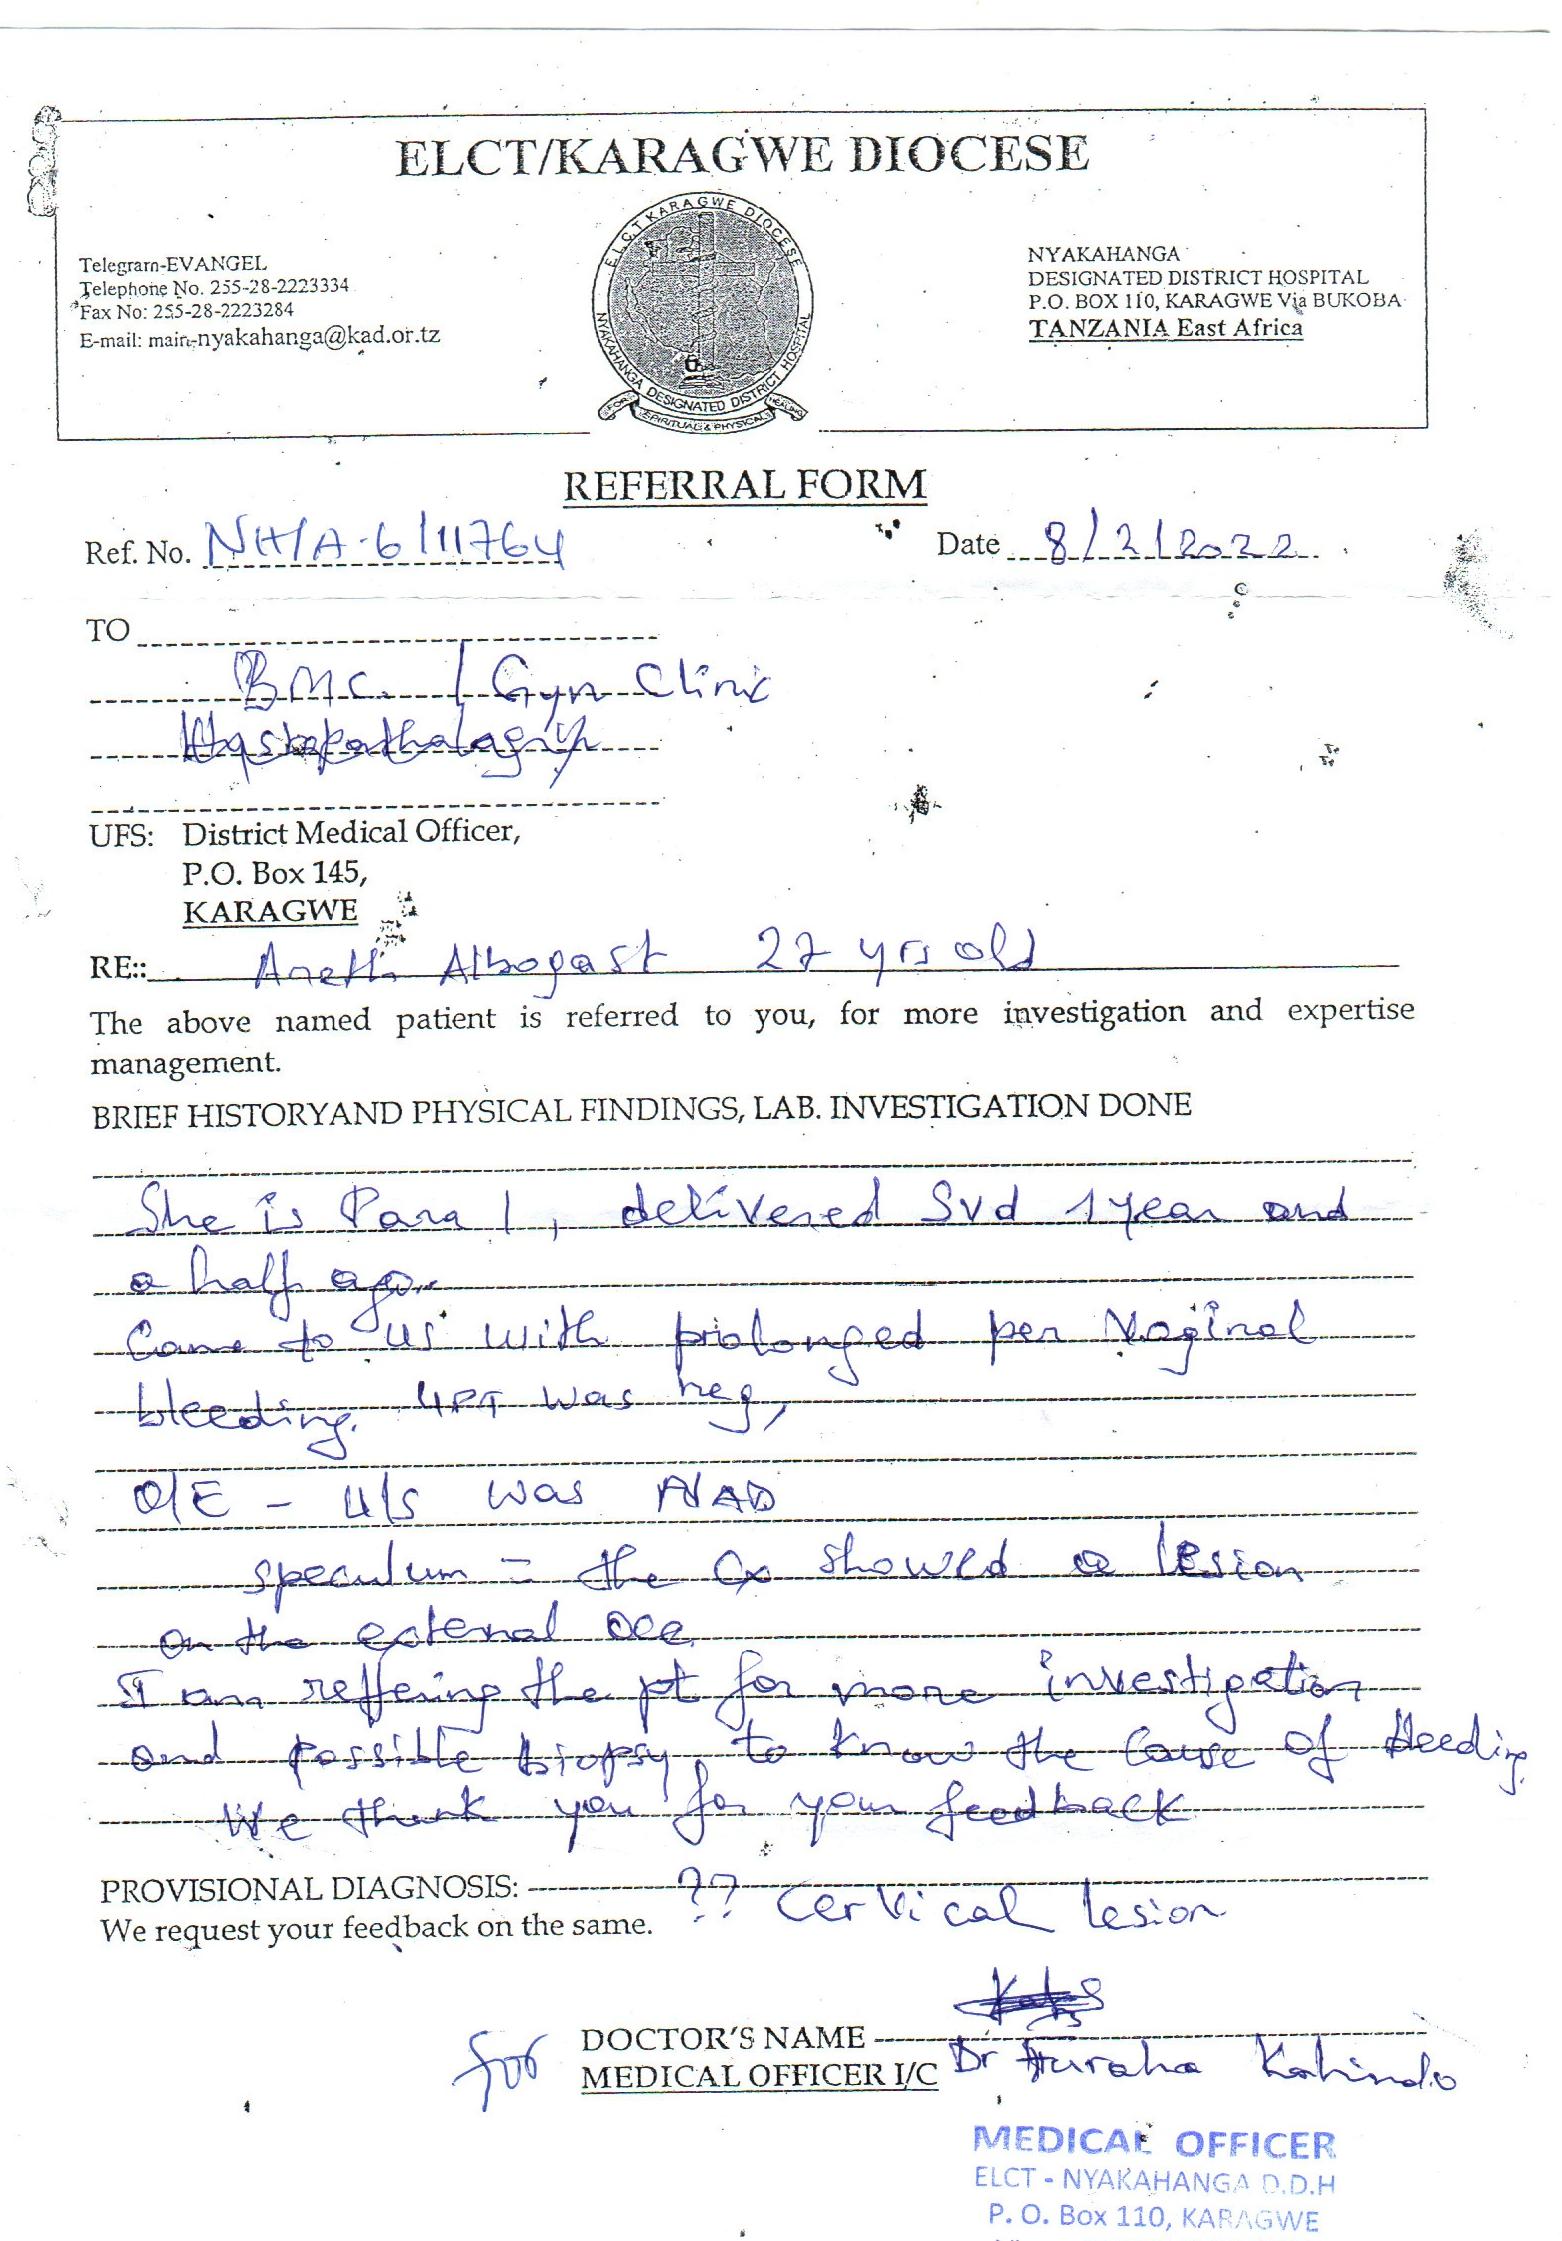 ELCT/KARAGWE DIOCESE
Telegram-EVANGEL
Telephone No. 255-28-2223334
Fax No: 255-28-2223284
E-mail: main-nyakahanga@kad.or.tz
E.L.C.T KARAGWE DIOCESE
NYAKAHANGA DESIGNATED DISTRICT HOSPITAL
FOR SPIRITUAL & PHYSICAL HEALING
NYAKAHANGA
DESIGNATED DISTRICT HOSPITAL
P.O. BOX 110, KARAGWE Via BUKOBA
TANZANIA East Africa
REFERRAL FORM
Ref. No. NH/A-6/11764 Date 8/2/2022
TO
BMC. / Gyn Clinic
UFS: District Medical Officer,
P.O. Box 145,
KARAGWE
RE:: Aneth Albogast 27 yrs old
The above named patient is referred to you, for more investigation and expertise
management.
BRIEF HISTORYAND PHYSICAL FINDINGS, LAB. INVESTIGATION DONE
She is Para 1, delivered Svd 1 year and
a half ago..
Came to us with prolonged per Vaginal
bleeding. UPT was neg,
O/E - U/S was NAD
speculum = the Cx showed a lesion
on the external
I am reffering the pt for more investigation
and possible biopsy, to know the cause of bleeding
We thank you for your feedback
PROVISIONAL DIAGNOSIS: ?? Cervical lesion
We request your feedback on the same.
for DOCTOR'S NAME
MEDICAL OFFICER I/C Dr Furaha Kahindo
MEDICAL OFFICER
ELCT - NYAKAHANGA D.D.H
P. O. Box 110, KARAGWE